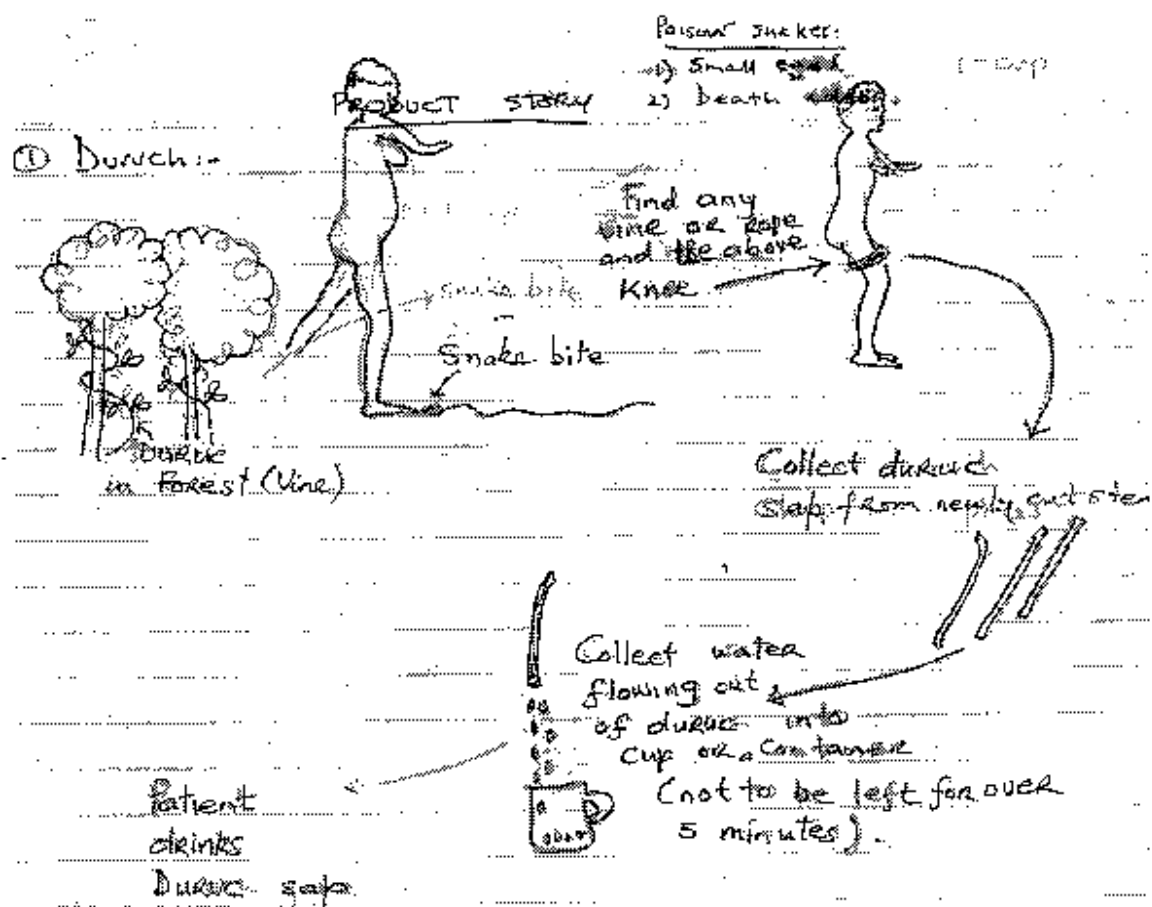 Poison sucker:
1) Small
2) Death
PRODUCT STORY
① Duruch:-
Find any
Vine or rope
and tie above
Knee
snake bite
Snake bite
Durue
in Forest (Vine)
Collect duruch
slap from newly cut stem
Collect water
flowing out
of durue into
cup or container
(not to be left for over
5 minutes).
Patient
drinks
Durue sap